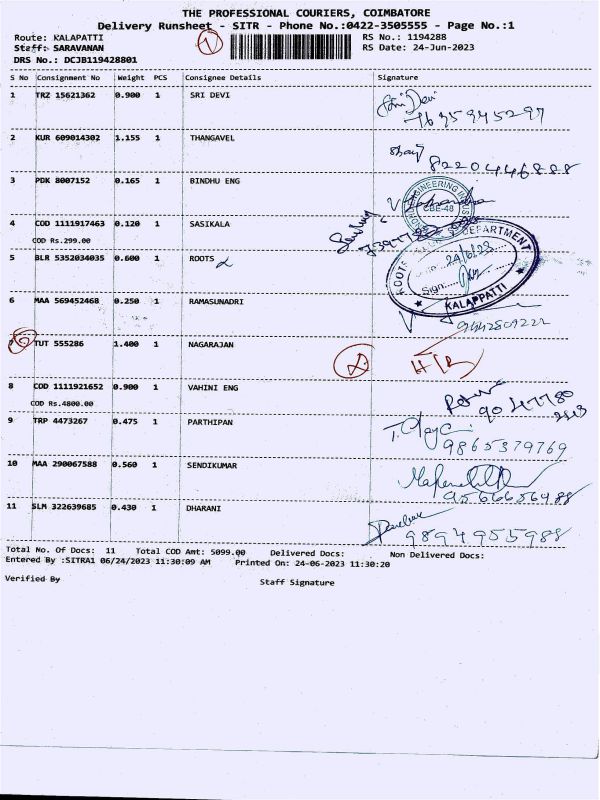 THE PROFESSIONAL COURIERS, COIMBATORE
Delivery Runsheet - SITR - Phone No.:0422-3505555 - Page No.:1
Route: KALAPATTI RS No.: 1194288
Staff: SARAVANAN RS Date: 24-Jun-2023
DRS No.: DCJB119428801
S No Consignment No Weight PCS Consignee Details Signature
1 TRZ 15621362 0.900 1 SRI DEVI
Sri Devi
2 KUR 609014302 1.155 1 THANGAVEL
8220446888
3 PDK 8007152 0.165 1 BINDHU ENG
CBE-48
4 COD 1111917463 0.120 1 SASIKALA
COD Rs.299.00
5 BLR 5352034035 0.600 1 ROOTS
ROOTS DEPARTMENT
24/6/23
Sign
KALAPPATTI
6 MAA 569452468 0.250 1 RAMASUNADRI
9442809222
7 TUT 555286 1.400 1 NAGARAJAN
8 COD 1111921652 0.900 1 VAHINI ENG
COD Rs.4800.00
9 TRP 4473267 0.475 1 PARTHIPAN
9865379769
10 MAA 290067588 0.560 1 SENDIKUMAR
9566656988
11 SLM 322639685 0.430 1 DHARANI
9894955988
Total No. Of Docs: 11 Total COD Amt: 5099.00 Delivered Docs: Non Delivered Docs:
Entered By :SITRA1 06/24/2023 11:30:09 AM Printed On: 24-06-2023 11:30:20
Verified By Staff Signature